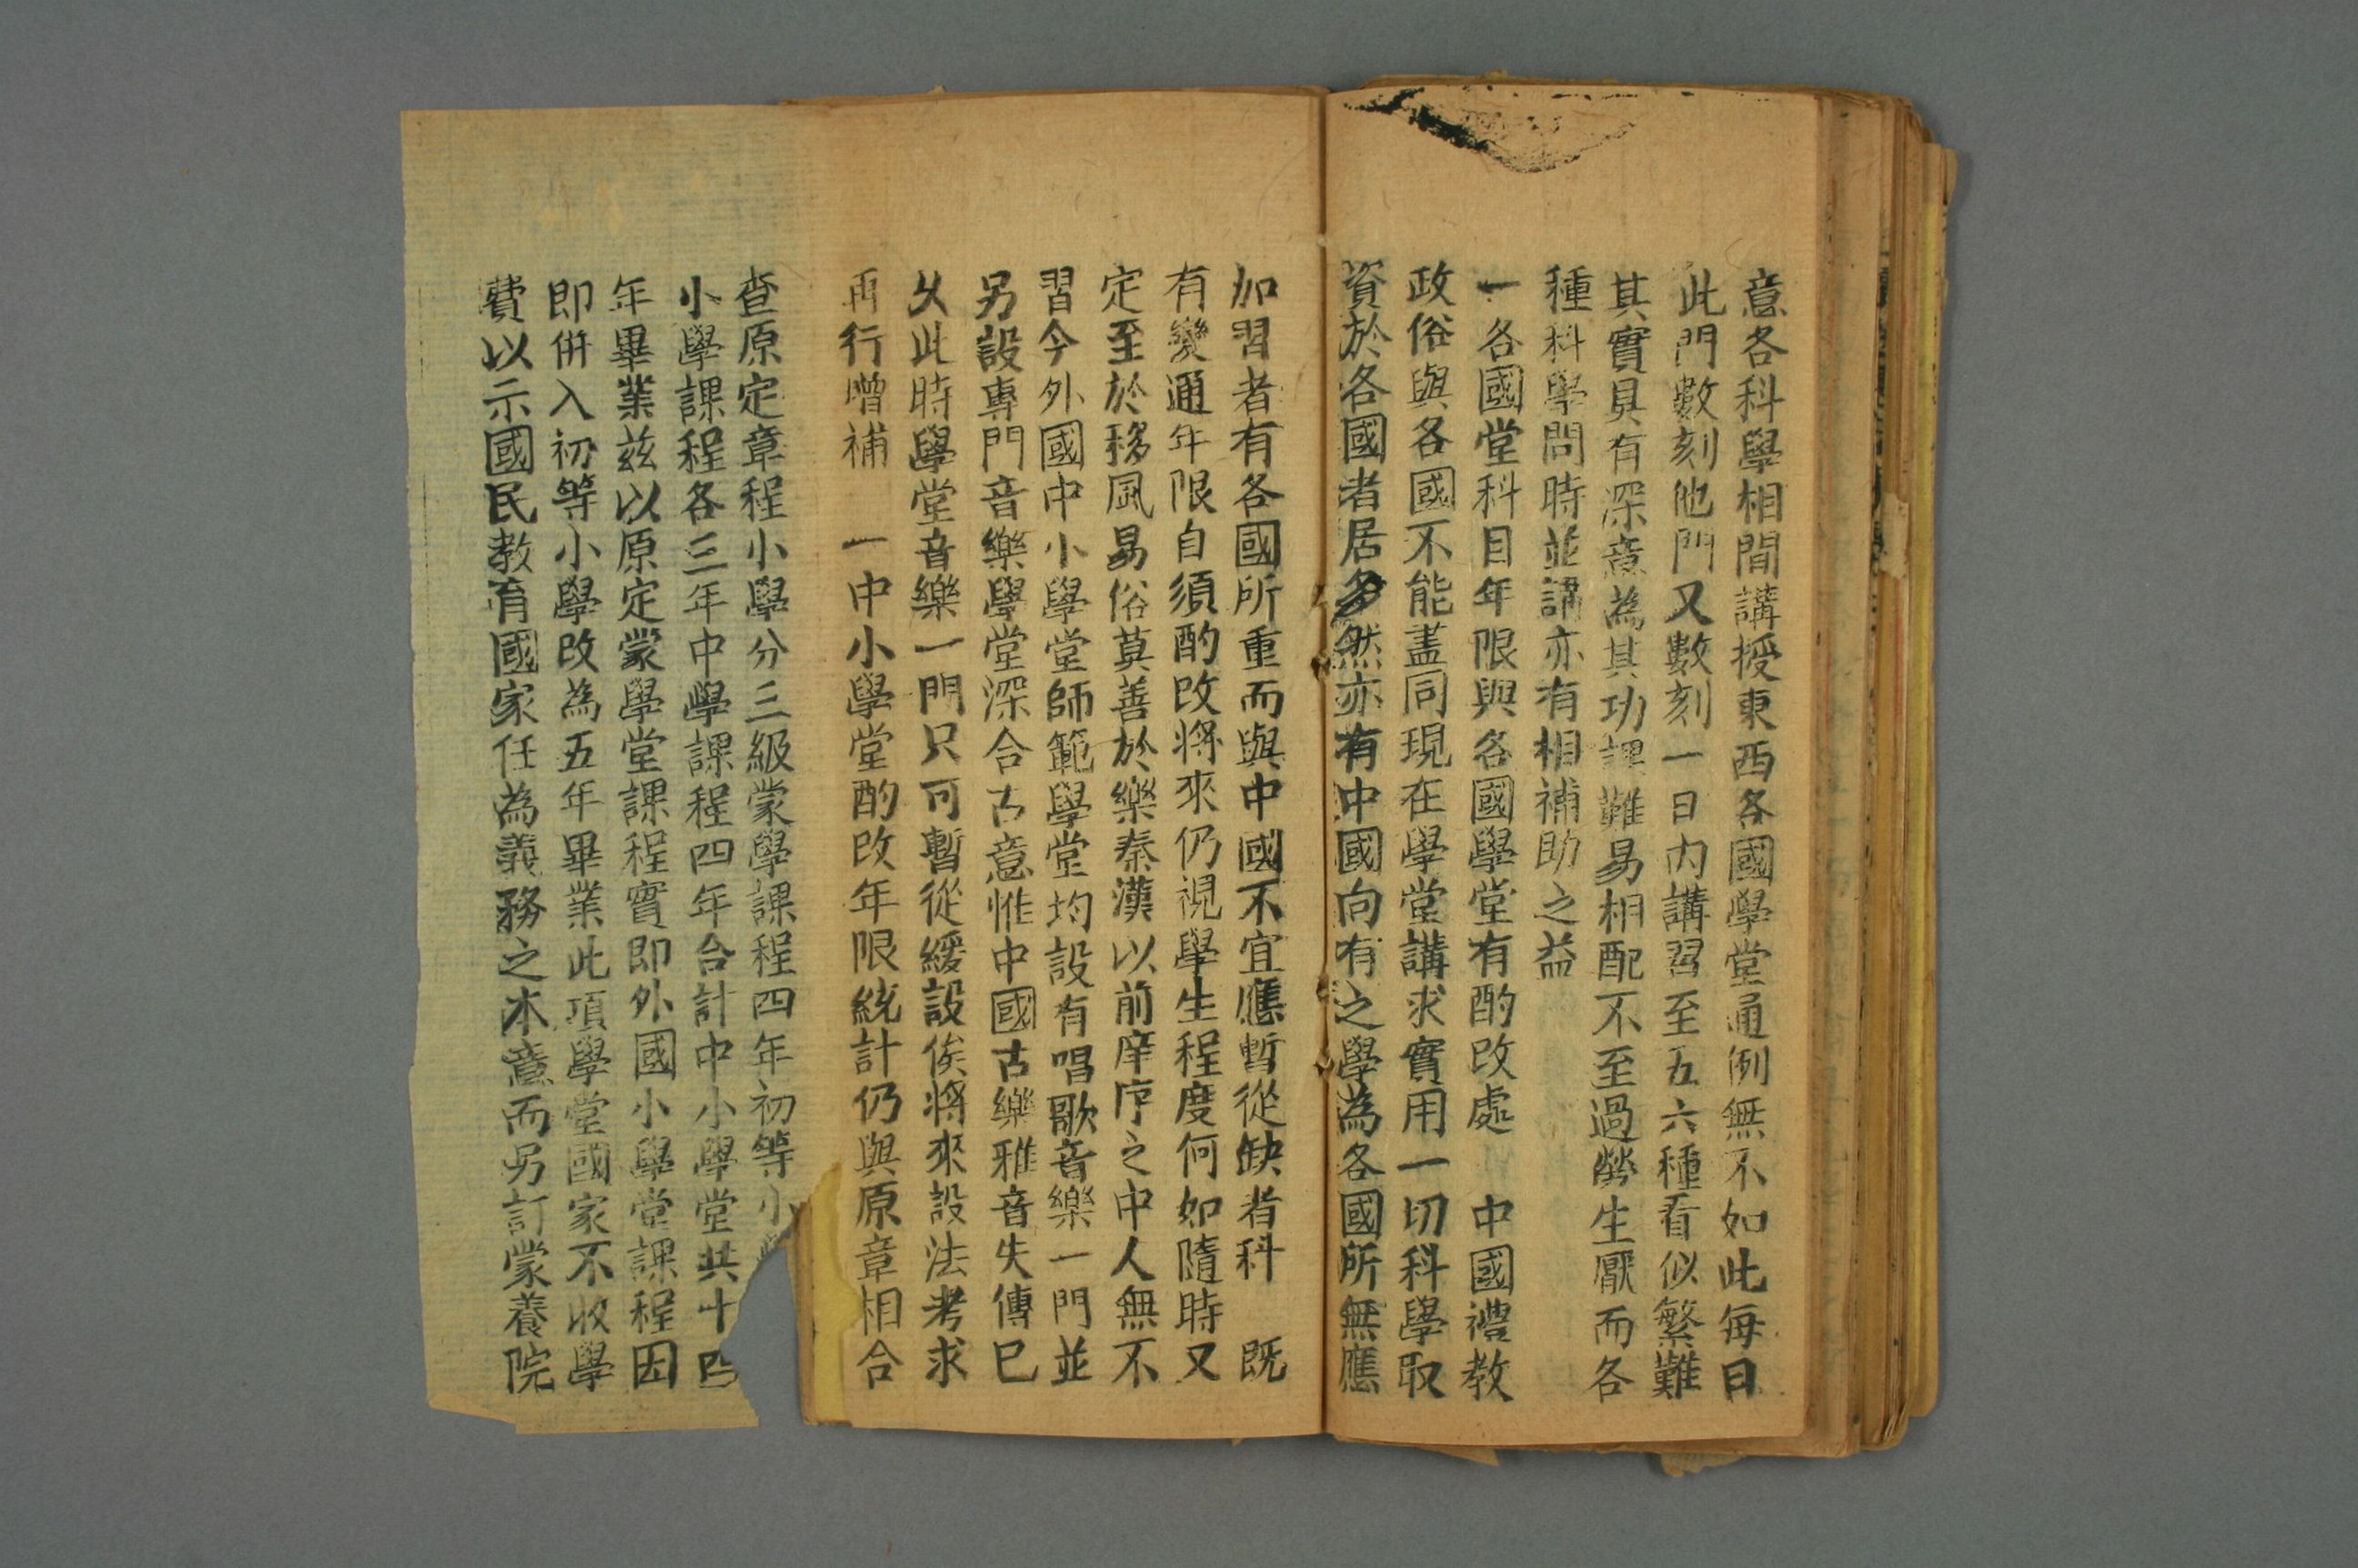 意各科學相間講授東西各國學堂通例無不如此每日
此門數刻他門又數刻一日内講習至五六種看似繁難
其實具有深意為其功課難易相配不至過勞生厭而各
種科學問時並講亦有相補助之益
一各國堂科目年限與各國學堂有酌改處　中國禮教
政俗與各國不能盡同現在學堂講求實用一切科學取
資於各國者居多然亦有中國向有之學為各國所無應
加習者有各國所重而與中國不宜應暫從缺者科　既
有變通年限自須酌改將來仍視學生程度何如隨時又
定至於移風易俗莫善於樂秦漢以前庠序之中人無不
習今外國中小學堂師範學堂均設有唱歌音樂一門並
另設專門音樂學堂深合古意惟中國古樂雅音失傳已
久此時學堂音樂一門只可暫從緩設俟將來設法考求
再行增補　一中小學堂酌改年限統計仍與原章相合
查原定章程小學分三級蒙學課程四年初等小
小學課程各三年中學課程四年合計中小學堂共十四
年畢業茲以原定蒙學堂課程實即外國小學堂課程因
即併入初等小學改為五年畢業此項學堂國家不收學
費以示國民教育國家任為義務之本意而另訂蒙養院